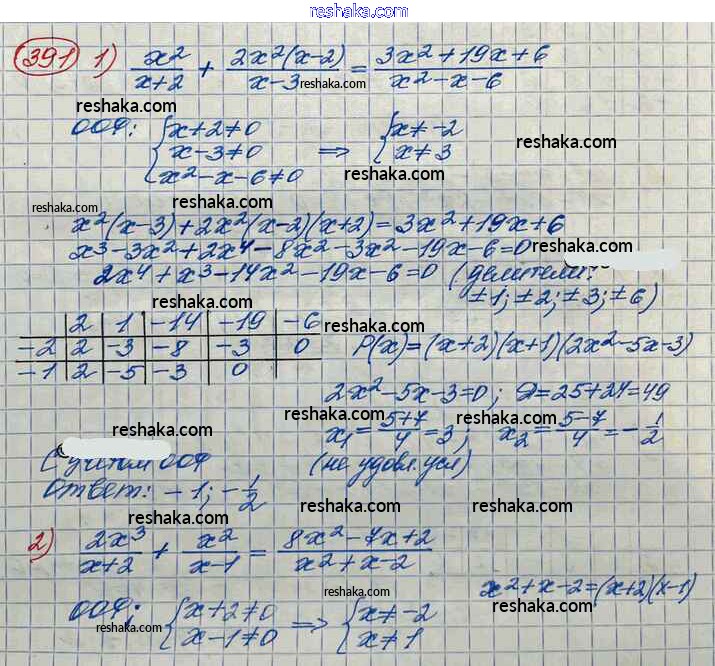 reshaka.com
391 1) x²/(x+2) + 2x²(x-2)/(x-3) = (3x²+19x+6)/(x²-x-6)
reshaka.com
reshaka.com
ООФ: { x+2≠0 ; x-3≠0 ; x²-x-6≠0 ⇒ { x≠-2 ; x≠3
reshaka.com
reshaka.com
reshaka.com
reshaka.com
x²(x-3)+2x²(x-2)(x+2)=3x²+19x+6
x³-3x²+2x⁴-8x²-3x²-19x-6=0
reshaka.com
2x⁴+x³-14x²-19x-6=0 (делители:
±1; ±2; ±3; ±6)
reshaka.com
reshaka.com
| 2 | 1 | -14 | -19 | -6
reshaka.com
-2 | 2 | -3 | -8 | -3 | 0 P(x)=(x+2)(x+1)(2x²-5x-3)
-1 | 2 | -5 | -3 | 0
2x²-5x-3=0; D=25+24=49
reshaka.com
reshaka.com
reshaka.com
x₁=(5+7)/4=3; x₂=(5-7)/4=-1/2
reshaka.com
С учётом ООФ (не удовл. усл)
Ответ: -1; -1/2
reshaka.com
reshaka.com
reshaka.com
2) 2x³/(x+2) + x²/(x-1) = (8x²-7x+2)/(x²+x-2)
reshaka.com
x²+x-2=(x+2)(x-1)
reshaka.com
ООФ: { x+2≠0 ; x-1≠0 ⇒ { x≠-2 ; x≠1
reshaka.com
reshaka.com
reshaka.com